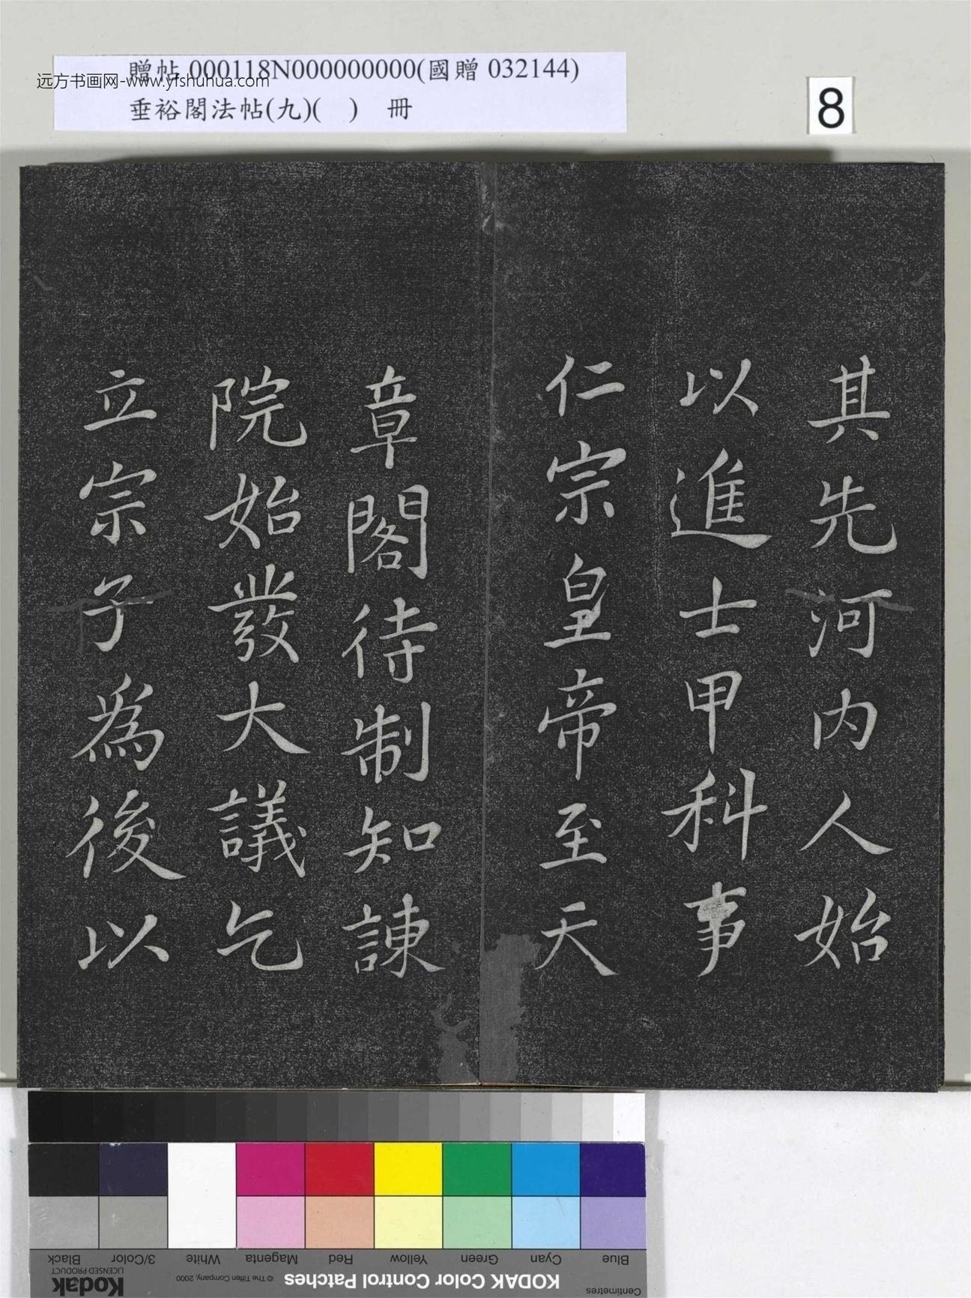 贈帖 000118N000000000(國贈 032144)
远方书画网-www.yfshuhua.com
垂裕閣法帖(九)( ) 冊
8
其先河内人始
以進士甲科事
仁宗皇帝至天
章閣待制知諫
院始發大議乞
立宗子為後以
Black 3/Color White Magenta Red Yellow Green Cyan Blue
Kodak LICENSED PRODUCT © The Tiffen Company, 2000 KODAK Color Control Patches Centimetres